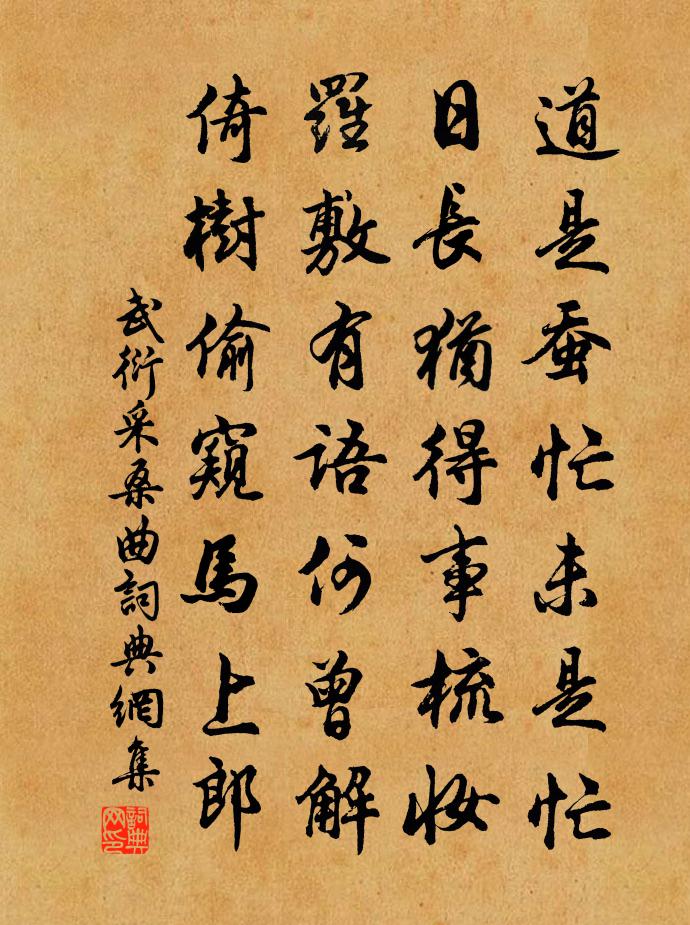 道是蚕忙未是忙
日長猶得事梳妆
羅敷有語何曾解
倚樹偷窺馬上郎
武衍采桑曲詞典網集
詞典网印